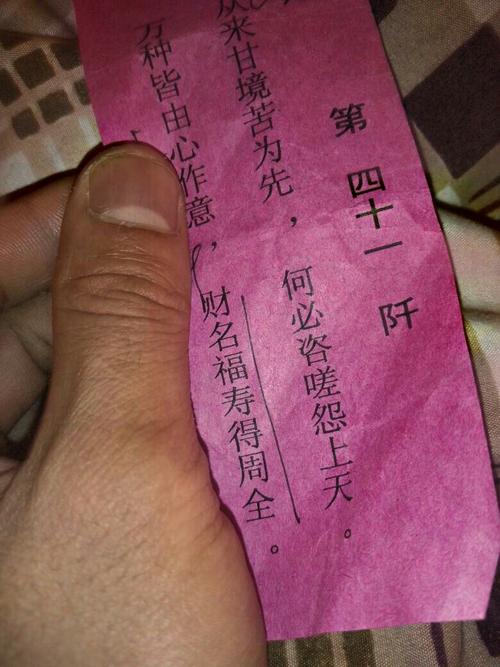 第 四十一 阡
从来甘境苦为先，何必咨嗟怨上天。
万种皆由心作意，财名福寿得周全。